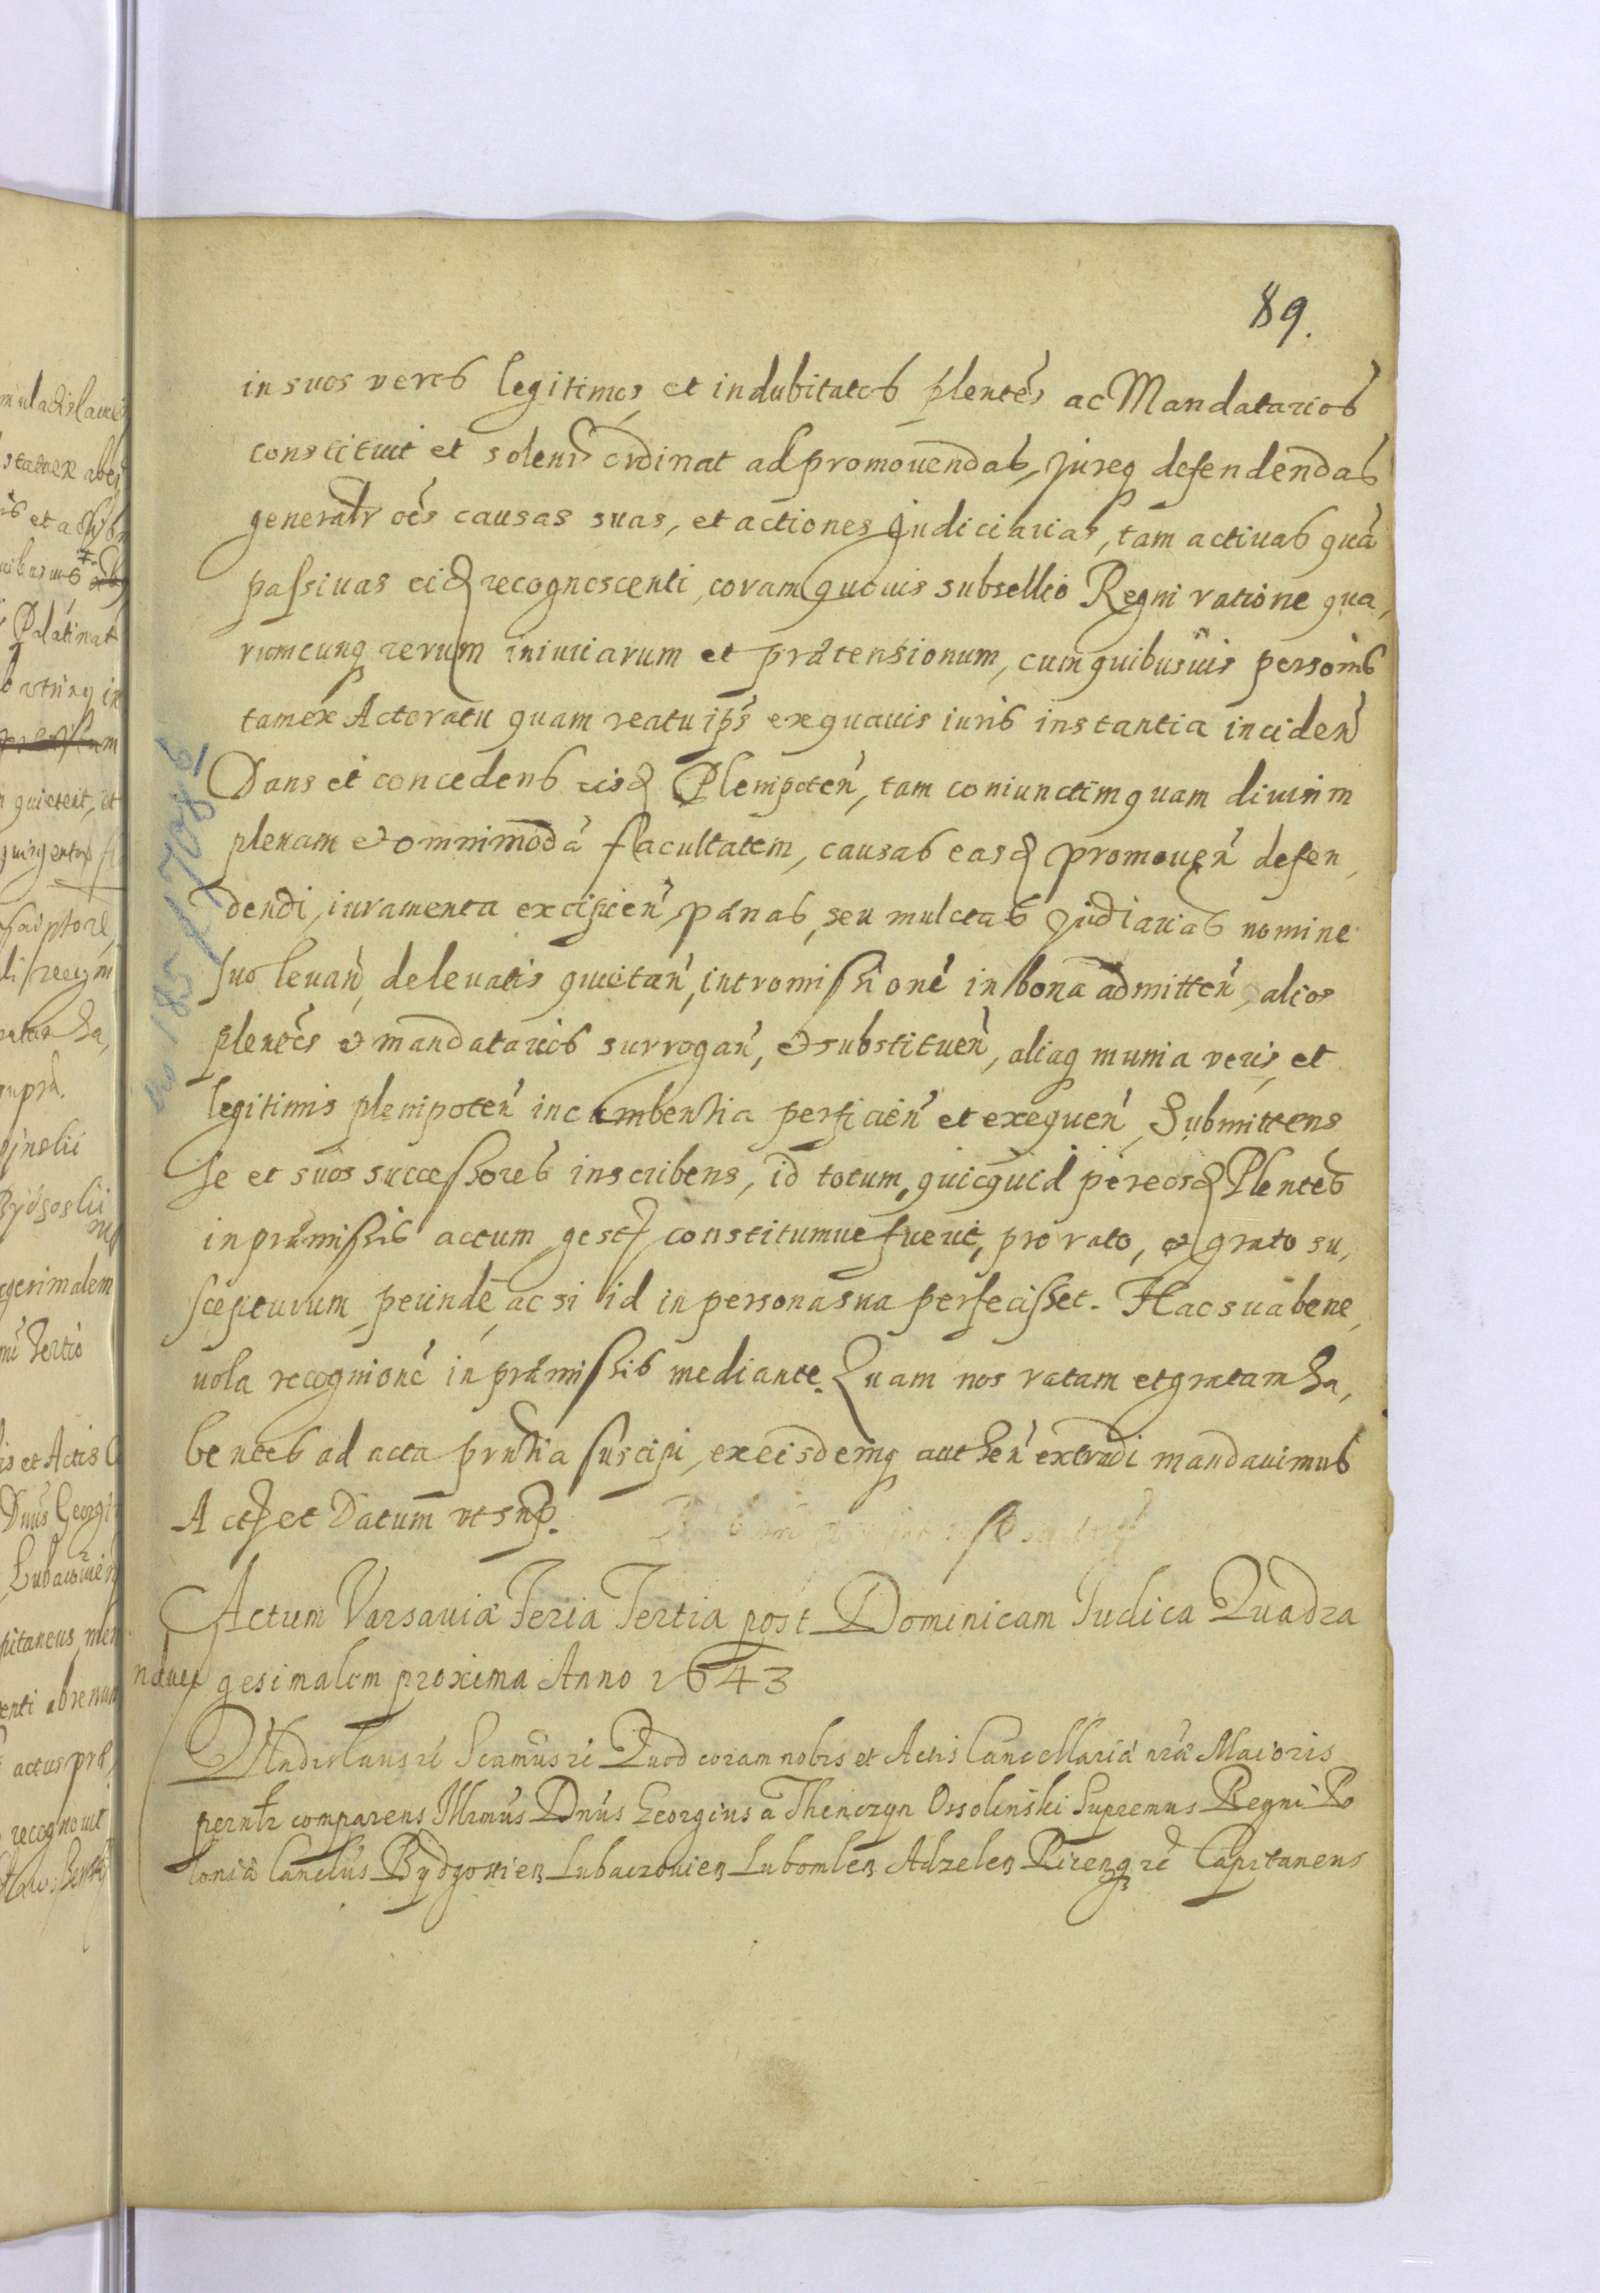 89.
in suos veros legitimos et indubitatos plentes ac Mandatarios
constituit et solenr ordinat ad promovendas, jureq defendendas
generalr oes causas suas, et actiones Judiciarias, tam activas quā
passivas eid recognoscenti, coram quovis subsellio Regni ratione qua,
rumcunq rerum iniuriarum et prætensionum, cum quibusuis personis
tam ex Actoratu quam reatu ips ex quavis iuris instantia inciden
Dans et concedens eisd Plenipoten, tam coniunctim quam diuisim
plenam et omnimodā facultatem, causas easd promouen defen,
dendi, iuramenta excipien, pænas, seu mulctas Judiarias nomine
suo leuan, de leuatis quietan, intromissione in bona admitten, alios
plentes et mandatarios surrogan, et substituen, aliaq munia veris, et
legitimis plenipoten incumbentia perficien et exequen, Submittens
se et suos successores inscribens, id totum, quicquid per eosd Plentes
in præmissis actum, gest, constitumue fuerit, pro rato, et grato su,
scepturum, perinde, ac si id in persona sua perfecisset. Hac sua bene,
uola recognione in præmissis mediante. Quam nos ratam et gratam ha,
bentes ad acta prntia suscipi, ex eisdemq authen extradi mandauimus
Act et Datum ut sup.
Actum Varsauiæ Feria Tertia post Dominicam Iudica Quadra
gesimalem proxima Anno 1643
Vladislaus rc Scamus rc Quod coram nobis et Actis Cancellariæ nræ Maioris
perntr comparens Illrmus Dnus Georgius a Thenczyn Ossolinski Supremus Regni Po
loniæ Canclus Bydgostien Lubaczouien Lubomlen Adzelen Rizenq rc Capitaneus